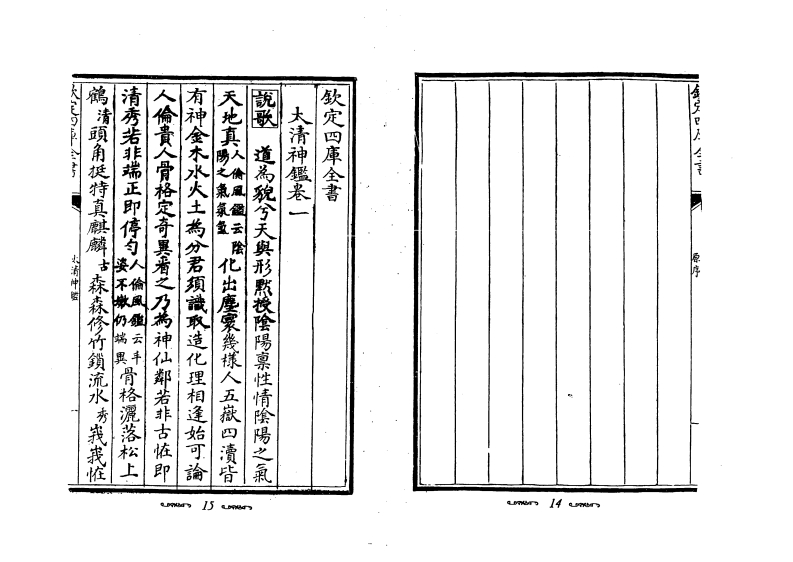 欽定四庫全書
原序
14
欽定四庫全書
太清神鑑卷一
說歌 道為貌兮天與形黙授陰陽禀性情陰陽之氣
天地真人倫風鑑云陰陽之氣氣氲化出塵寰幾樣人五嶽四瀆皆
有神金木水火土為分君須識取造化理相逢始可論
人倫貴人骨格定奇異看之乃為神仙鄰若非古怪即
清秀若非端正即停匀人倫風鑑云丰姿不嫩仍端異骨格灑落松上
鶴清頭角挺特真麒麟古森森修竹鎖流水秀峩峩怪
欽定四庫全書
太清神鑑
一
15